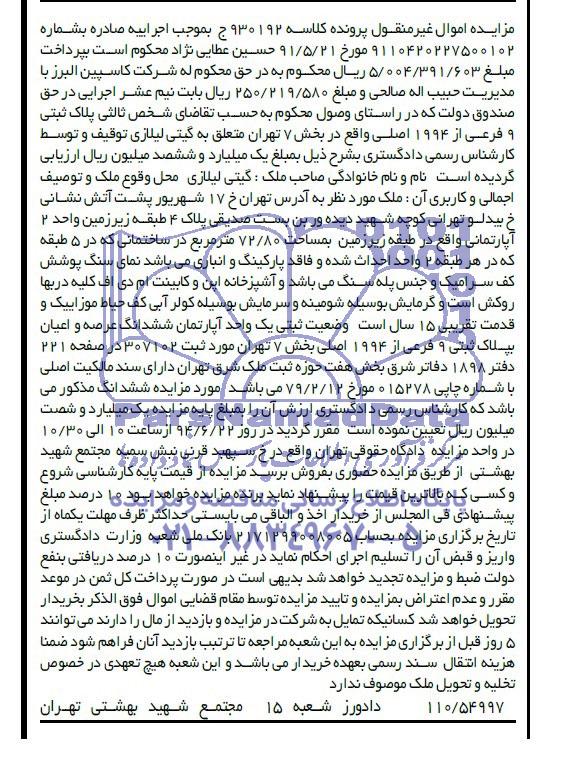 مزایده اموال غیرمنقول پرونده کلاسه ۹۳۰۱۹۲ ج بموجب اجراییه صادره بشماره
۹۱۱۰۴۲۰۲۲۷۵۰۰۱۰۲ مورخ ۹۱/۵/۲۱ حسین عطایی نژاد محکوم است بپرداخت
مبلغ ۵/۰۰۴/۳۹۱/۶۰۳ ریال محکوم به در حق محکوم له شرکت کاسپین البرز با
مدیریت حبیب اله صالحی و مبلغ ۲۵۰/۲۱۹/۵۸۰ ریال بابت نیم عشر اجرایی در حق
صندوق دولت که در راستای وصول محکوم به حسب تقاضای شخص ثالثی پلاک ثبتی
۹ فرعی از ۱۹۹۴ اصلی واقع در بخش ۷ تهران متعلق به گیتی لیلازی توقیف و توسط
کارشناس رسمی دادگستری بشرح ذیل بمبلغ یک میلیارد و ششصد میلیون ریال ارزیابی
گردیده است نام و نام خانوادگی صاحب ملک : گیتی لیلازی محل وقوع ملک و توصیف
اجمالی و کاربری آن : ملک مورد نظر به آدرس تهران خ ۱۷ شهریور پشت آتش نشانی
خ بیدلو تهرانی کوچه شهید دیده ور بن بست صدیقی پلاک ۴ طبقه زیرزمین واحد ۲
آپارتمانی واقع در طبقه زیرزمین بمساحت ۷۲/۸۰ مترمربع در ساختمانی که در ۵ طبقه
که در هر طبقه ۲ واحد احداث شده و فاقد پارکینگ و انباری می باشد نمای سنگ پوشش
کف سرامیک و جنس پله سنگ می باشد و آشپزخانه اپن و کابینت ام دی اف کلیه دربها
روکش است و گرمایش بوسیله شومینه و سرمایش بوسیله کولر آبی کف حیاط موزاییک و
قدمت تقریبی ۱۵ سال است وضعیت ثبتی یک واحد آپارتمان ششدانگ عرصه و اعیان
بپلاک ثبتی ۹ فرعی از ۱۹۹۴ اصلی بخش ۷ تهران مورد ثبت ۳۰۷۱۰۲ در صفحه ۲۲۱
دفتر ۱۸۹۸ دفاتر شرق بخش هفت حوزه ثبت ملک شرق تهران دارای سند مالکیت اصلی
با شماره چاپی ۰۱۵۲۷۸ مورخ ۷۹/۲/۱۲ می باشد مورد مزایده ششدانگ مذکور می
باشد که کارشناس رسمی دادگستری ارزش آن را بمبلغ پایه مزایده یک میلیارد و شصت
میلیون ریال تعیین نموده است مقرر گردید در روز ۹۴/۶/۲۲ از ساعت ۱۰ الی ۱۰/۳۰
در واحد مزایده دادگاه حقوقی تهران واقع در خ سپهبد قرنی نبش سمیه مجتمع شهید
بهشتی از طریق مزایده حضوری بفروش برسد مزایده از قیمت پایه کارشناسی شروع
و کسی که بالاترین قیمت را پیشنهاد نماید برنده مزایده خواهد بود ۱۰ درصد مبلغ
پیشنهادی فی المجلس از خریدار اخذ و الباقی می بایستی حداکثر ظرف مهلت یکماه از
تاریخ برگزاری مزایده بحساب ۲۱۷۱۲۹۹۰۰۸۰۰۵ بانک ملی شعبه وزارت دادگستری
واریز و قبض آن را تسلیم اجرای احکام نماید در غیر اینصورت ۱۰ درصد دریافتی بنفع
دولت ضبط و مزایده تجدید خواهد شد بدیهی است در صورت پرداخت کل ثمن در موعد
مقرر و عدم اعتراض بمزایده و تایید مزایده توسط مقام قضایی اموال فوق الذکر بخریدار
تحویل خواهد شد کسانیکه تمایل به شرکت در مزایده و بازدید از مال را دارند می توانند
۵ روز قبل از برگزاری مزایده به این شعبه مراجعه تا ترتیب بازدید آنان فراهم شود ضمنا
هزینه انتقال سند رسمی بعهده خریدار می باشد و این شعبه هیچ تعهدی در خصوص
تخلیه و تحویل ملک موصوف ندارد
۱۱۰/۵۴۹۹۷ دادورز شعبه ۱۵ مجتمع شهید بهشتی تهران
ParsNamadData
پایگاه اطلاع رسانی مناقصه و مزایده
۰۲۱-۸۸۳۴۹۶۷۰-۵